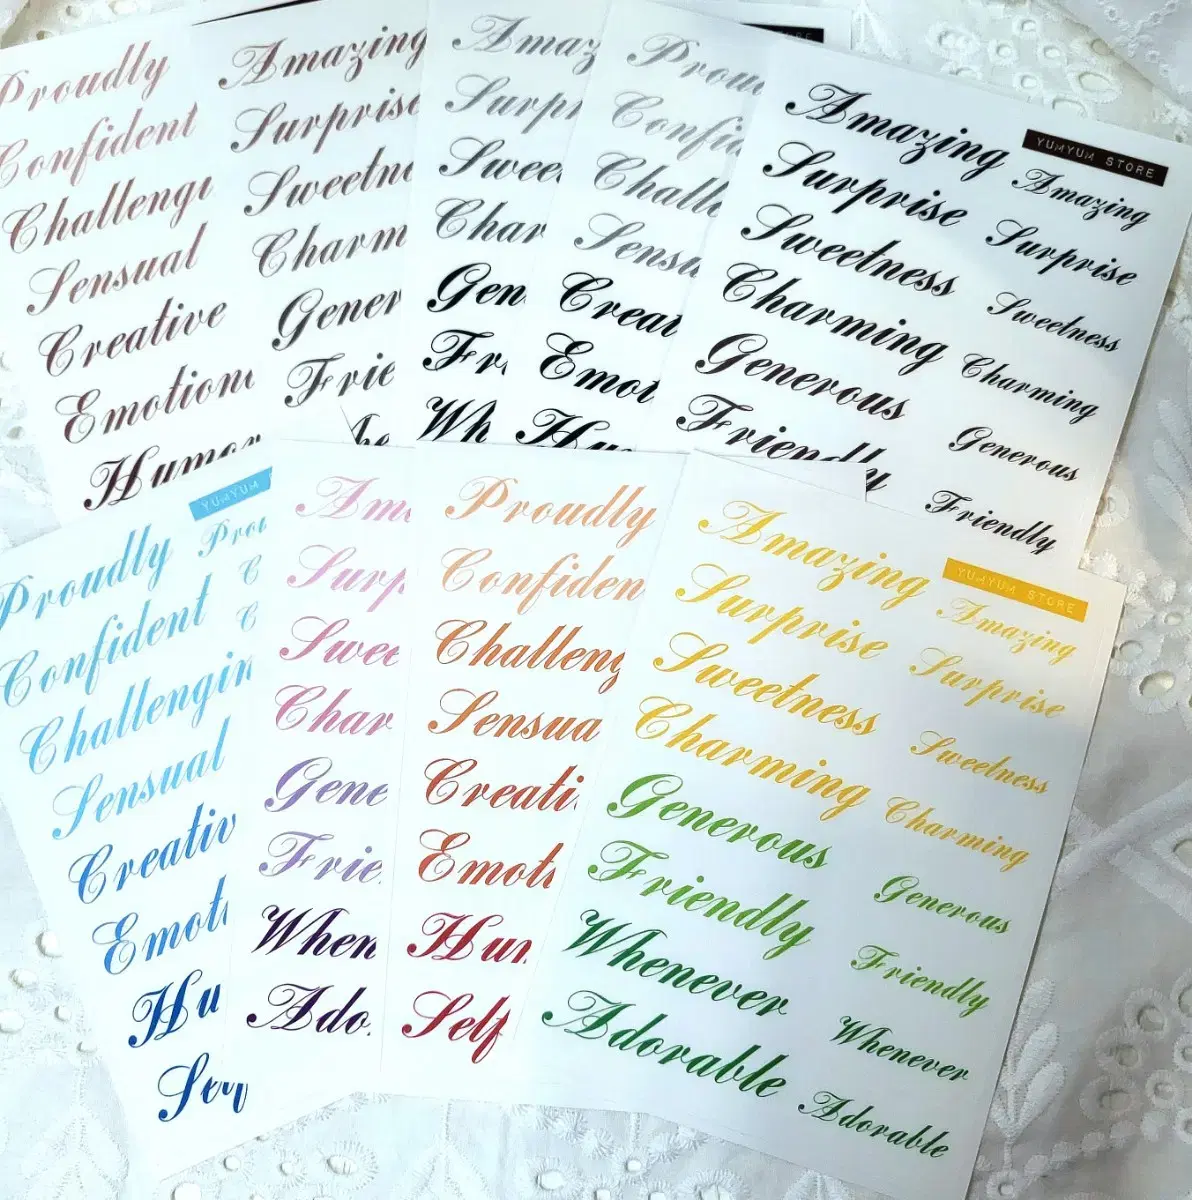 Proudly
Confident
Challengi
Sensual
Creative
Emotiona
Humor
Amazing
Surprise
Sweetne
Charm
Gener
Frie
Amaz
Surpr
Swee
Char
Gen
Fri
Wh
Prou
Confi
Challe
Sensu
Creat
Emot
Hu
STORE
YUMYUM STORE
Amazing
Surprise
Sweetness
Charming
Generous
Friendly
Amazing
Surprise
Sweetness
Charming
Generous
Friendly
YUMYUM S
Proudly
Confident
Challengin
Sensual
Creativ
Emot
Hu
Prou
C
C
Ama
Surp
Swee
Char
Gene
Frie
When
Ado
Proudly
Confiden
Challeng
Sensua
Creati
Emoti
Hum
Self
YUMYUM STORE
Amazing
Surprise
Sweetness
Charming
Generous
Friendly
Whenever
Adorable
Amazing
Surprise
Sweetness
Charming
Generous
Friendly
Whenever
Adorable